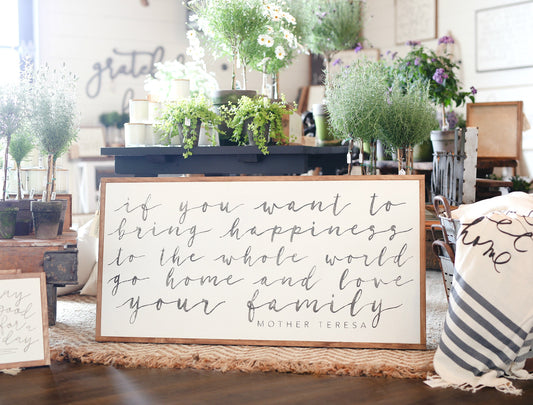 grateful
if you want to
bring happiness
to the whole world
go home and love
your family
MOTHER TERESA
good
for a
day
home